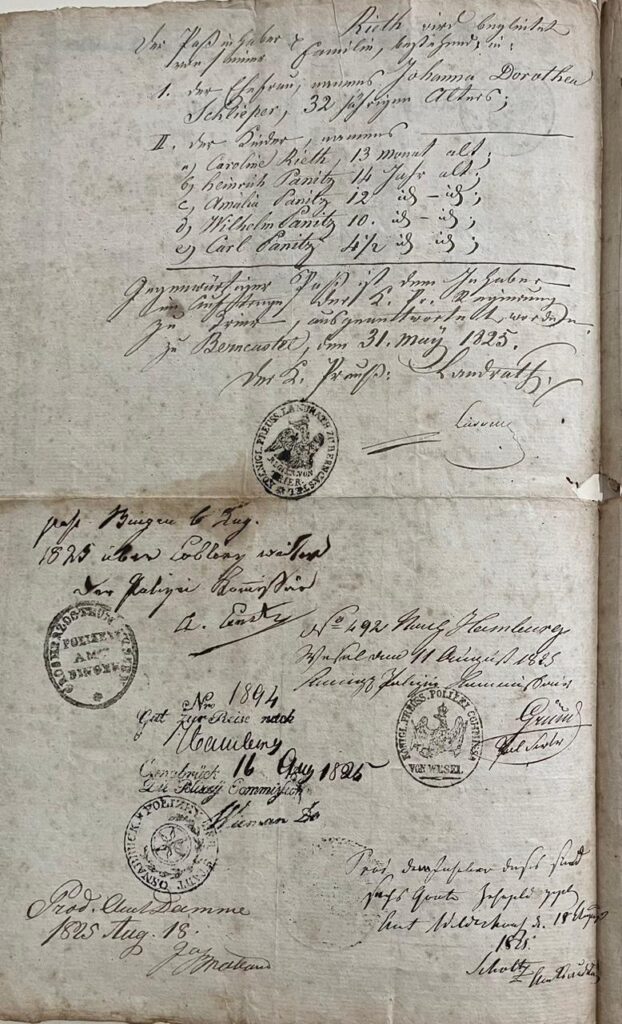 Der Paßinhaber p Rieth wird begleitet
von seiner Familie, bestehend in:
I. der Ehefrau, namens Johanna Dorothea
Schlieper, 32 jährigen Alters;
II. der Kinder, namens
a) Caroline Rieth, 13 monat alt;
b) Heinrich Panitz 14 Jahr alt;
c) Amalia Panitz 12 id – id;
d) Wilhelm Panitz 10. id – id;
e) Carl Panitz 4 1/2 id id;
Gegenwärtiger Paß ist dem Inhaber
im Auftrage der K. Pr. Regierung
zu Trier, ausgeantwortet worden.
zu Berncastel, den 31. may 1825.
Der K. Preuß: Landrath.
KÖNIGL. PREUSS. LANDRATH ZU BERNCASTEL
REGIER. VON
TRIER.
pass. Bingen 6 Aug.
1825 über Coblenz weiter
Der Polizei Kommissär
GROSHERZOGTHUM HESSEN
POLIZEY
AMT
BINGEN
No 492 Nach Hamburg
Wesel den 11 August 1825
Polizei Kommissair
Grund
KÖNIGL. PREUSS. POLIZEI COMMISS.
VON WESEL
No. 1894
Gut zur Reise nach
Hamburg
Osnabrück 16 Aug 1825
Die Polizey Commission
POLIZEY DER STADT OSNABRÜCK
Prod. Amt Damme
1825 Aug. 18.
Amt Wildeshausen d. 18 August
1825.
Scholtz